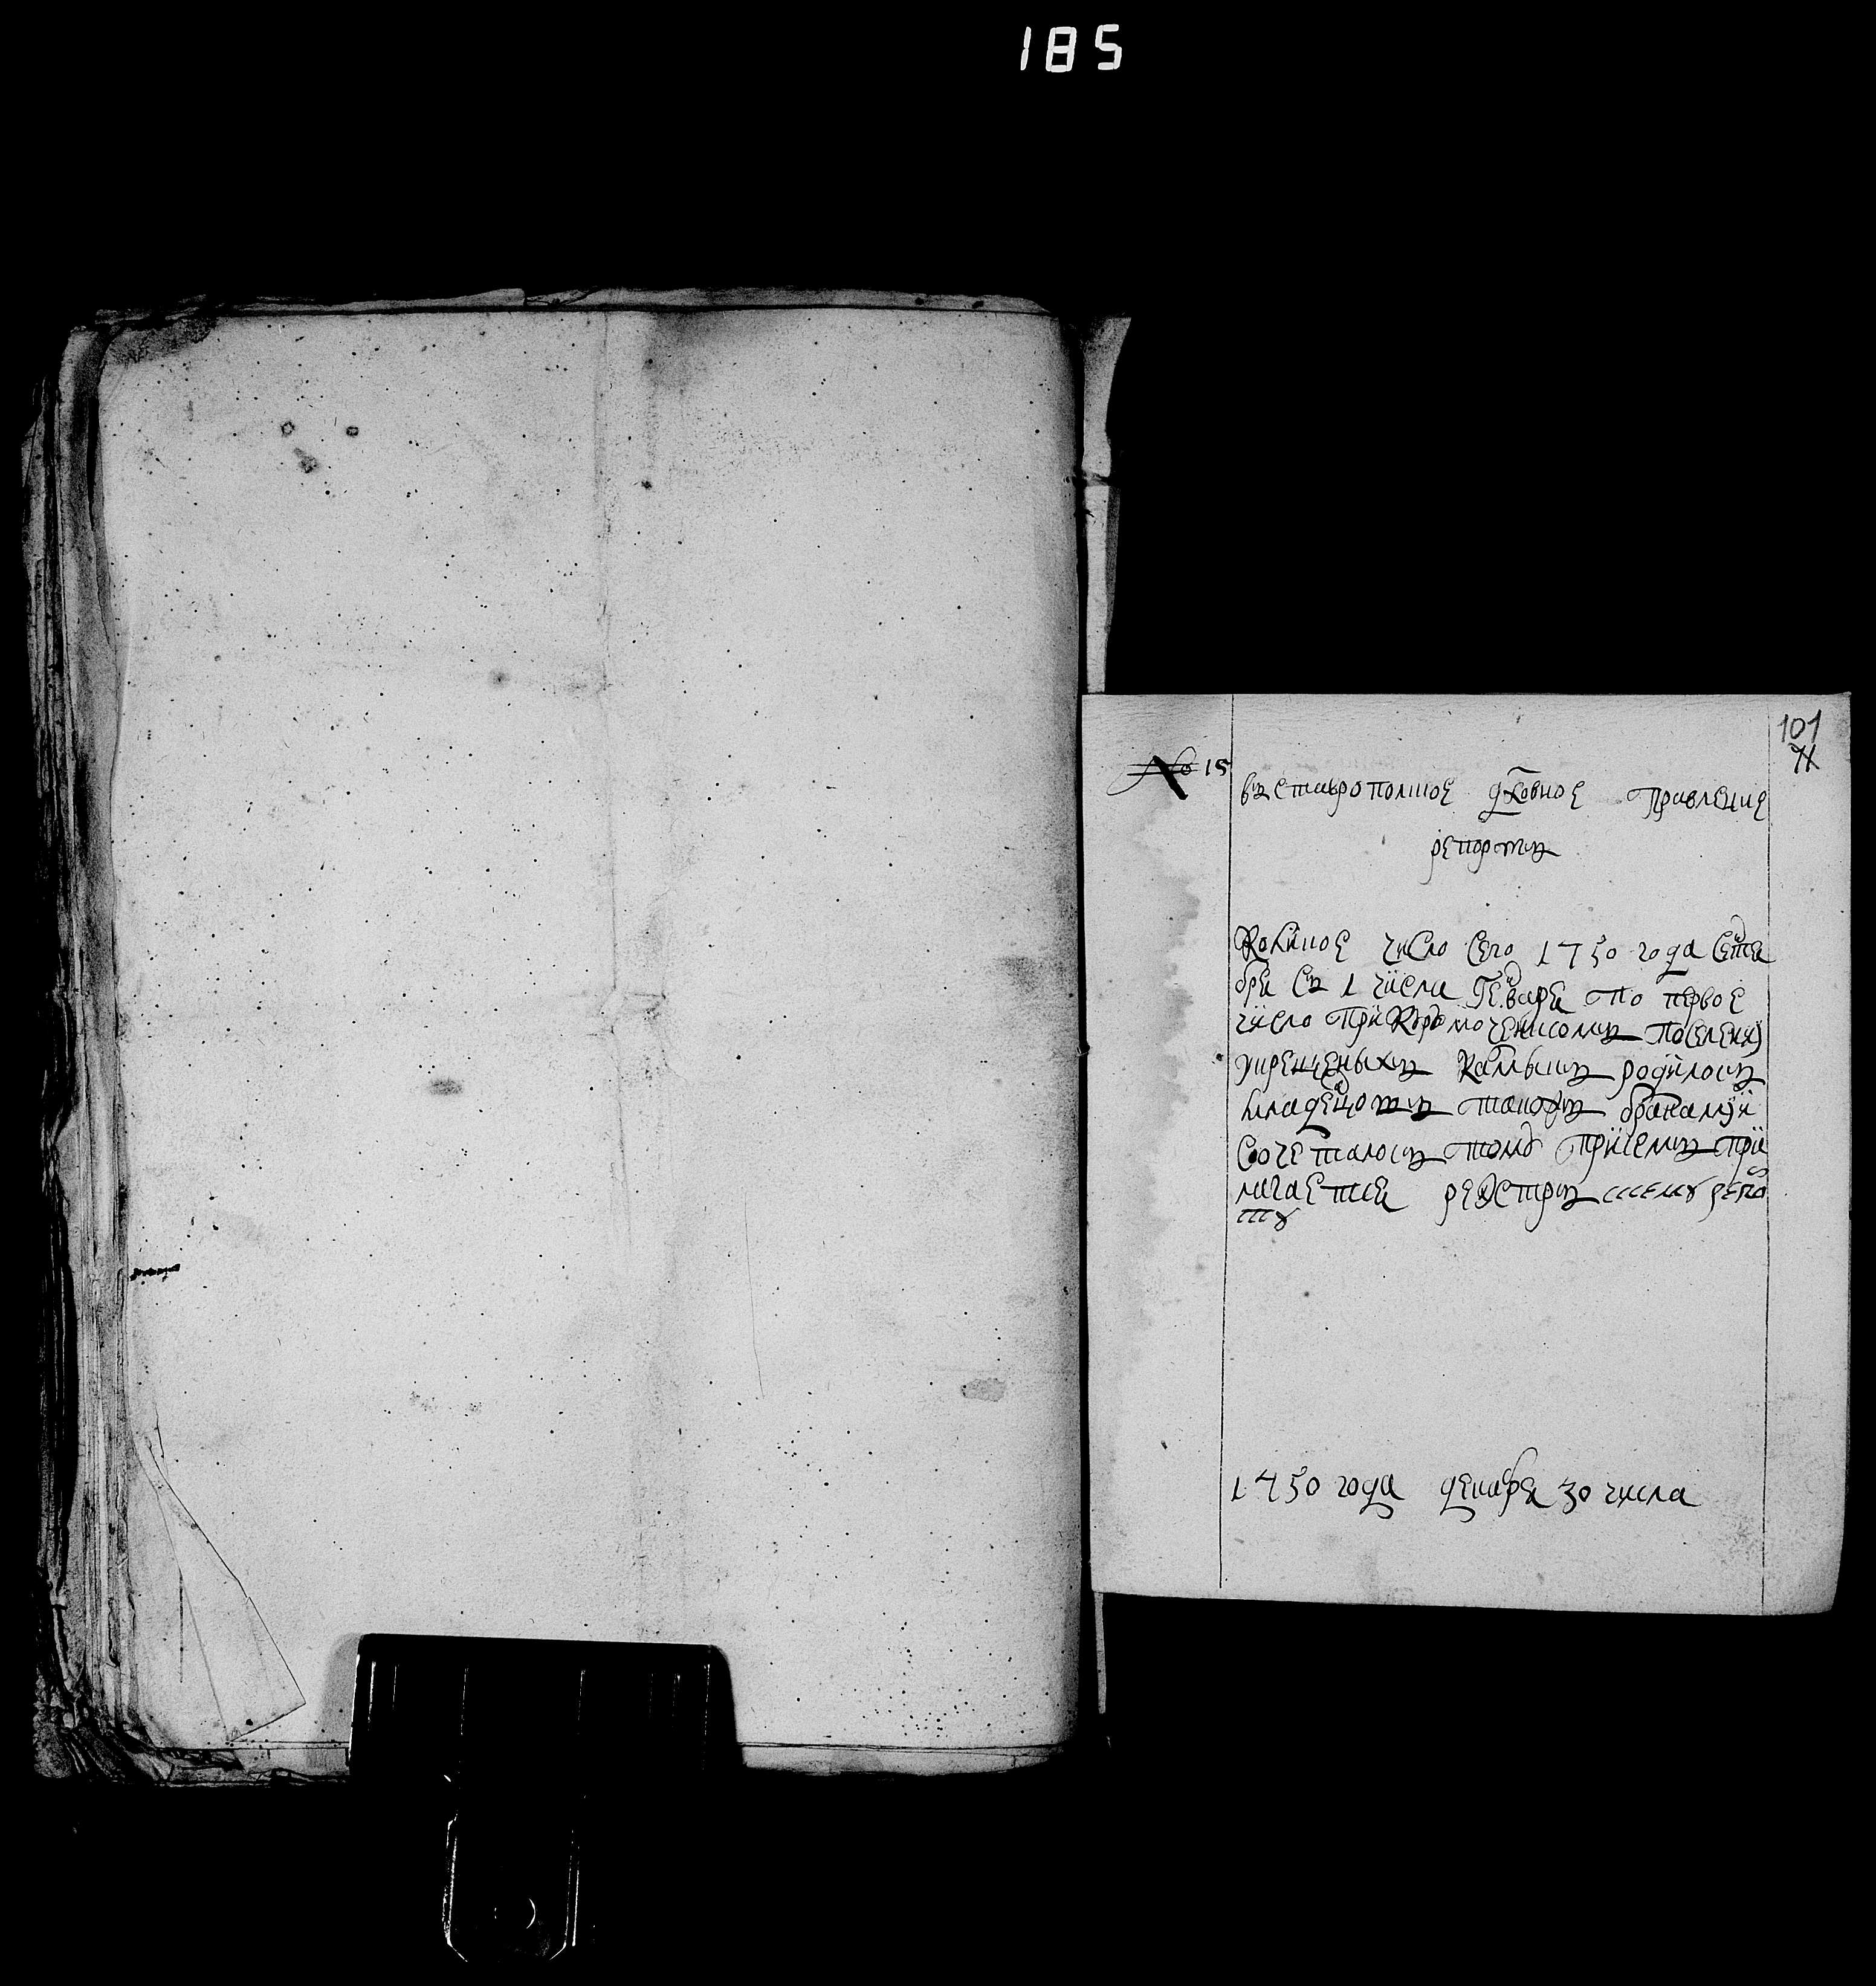 185
101
71
№ 15
въ ставрополное дховное правление
репортъ
Коликое число сего 1750 года сентя
бря съ 1 числа генваря по первое
число при
укрещеныхъ калмыкъ родилось
младенцовъ такожъ браками
сочеталось томб присемъ при
лагается реэстръ ксему репо
ту
1750 года декабря 30 числа